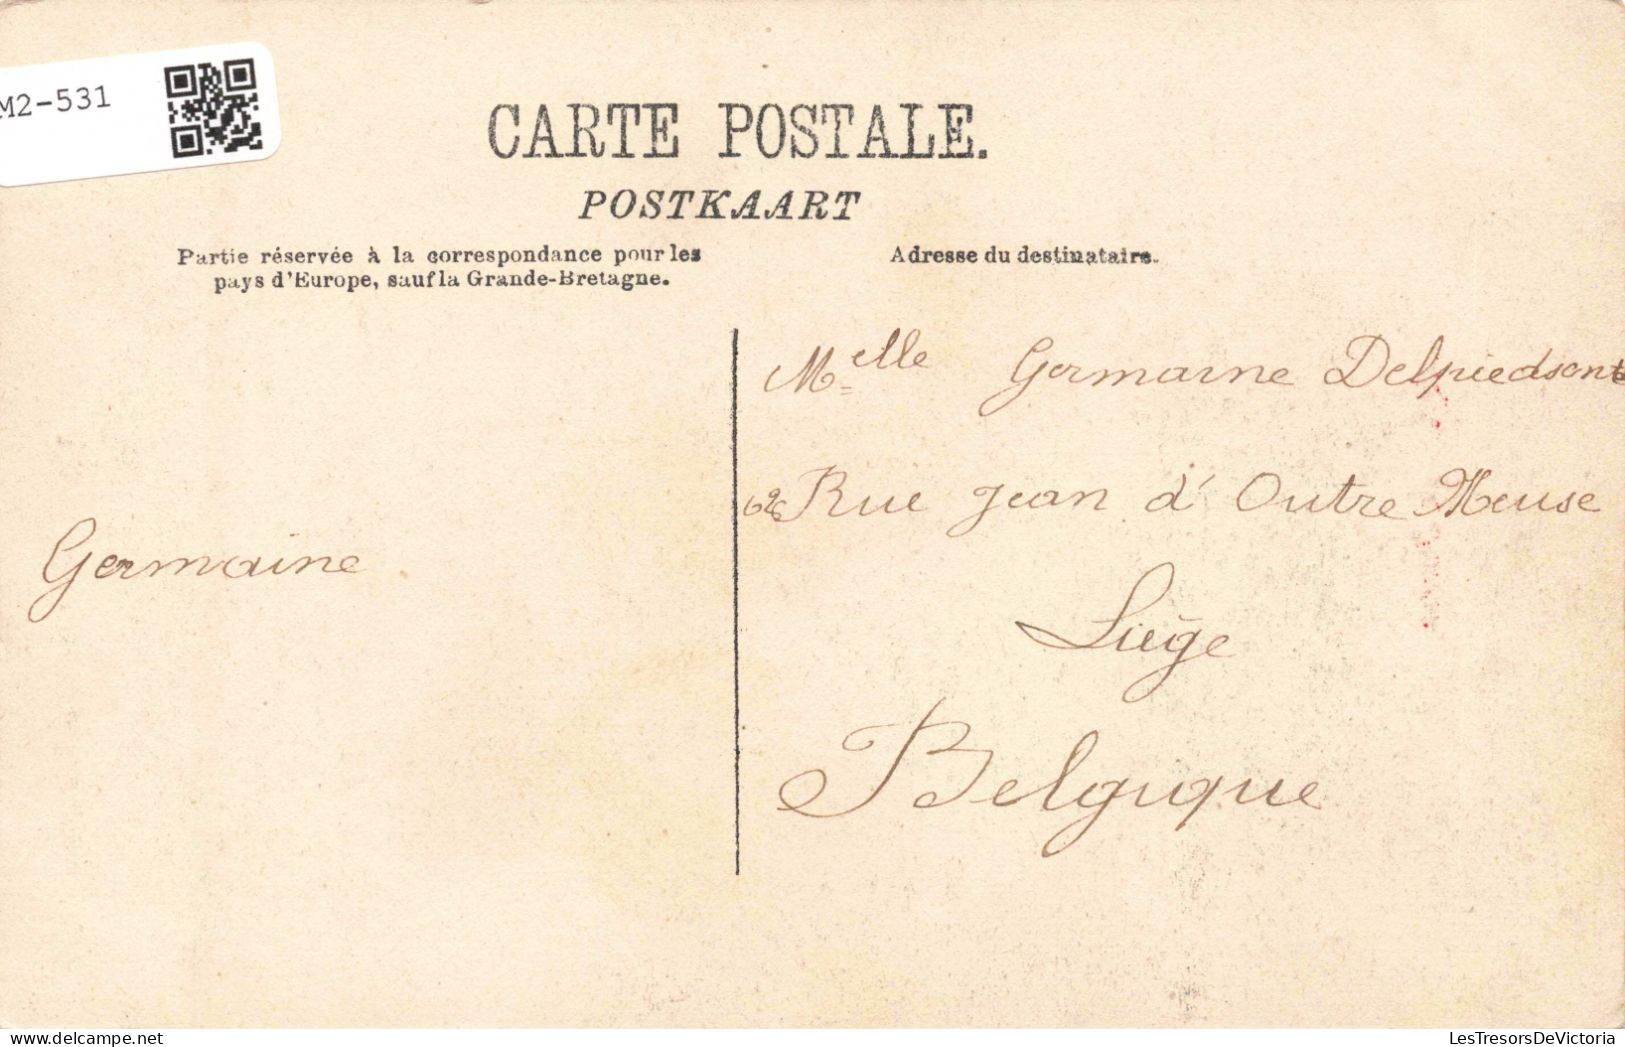 M2-531
CARTE POSTALE.
POSTKAART
Partie réservée à la correspondance pour les
pays d'Europe, sauf la Grande-Bretagne.
Adresse du destinataire.
Melle Germaine Delpiedsente
Rue Jean d'Outre Meuse
Germaine
Liège
Belgique
LesTresorsDeVictoria